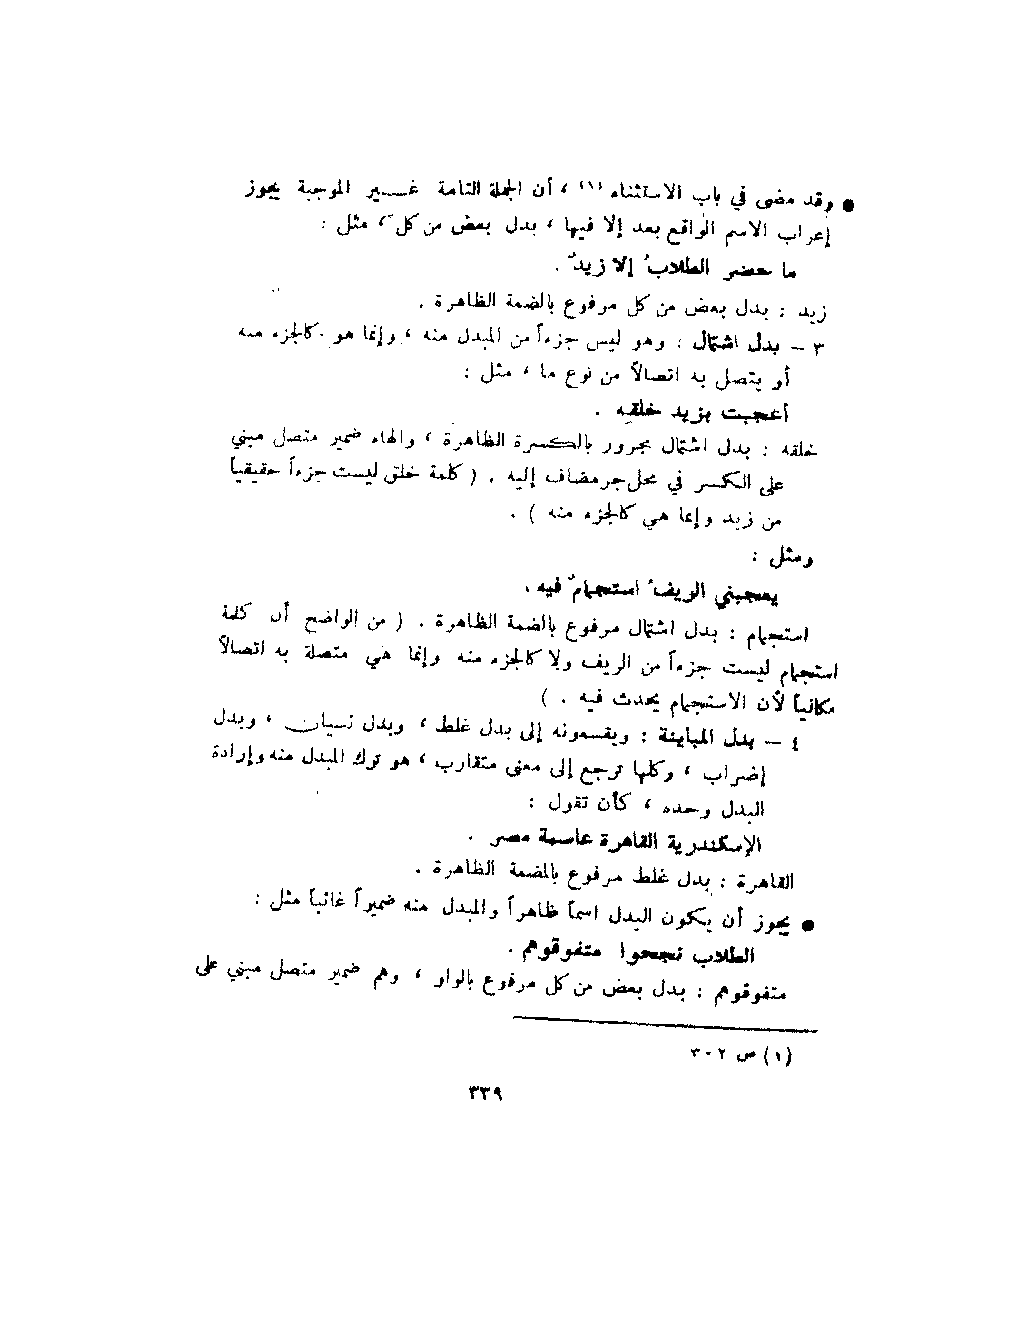 ● وقد مضى في باب الاستثناء (١) ، أن الجملة التامة غـــير الموجبة يجوز
إعراب الاسم الواقع بعد إلا فيها ، بدل بعض من كل ، مثل :
ما حضر الطلابُ إلا زيدٌ .
زيد : بدل بعض من كل مرفوع بالضمة الظاهرة .
٣ – بدل اشتمال : وهو ليس جزءاً من المبدل منه ، وإنما هو كالجزء منه
أو يتصل به اتصالاً من نوع ما ، مثل :
أعجبت بزيد خلقه .
خلقه : بدل اشتمال مجرور بالكسرة الظاهرة ، والهاء ضمير متصل مبني
على الكسر في محل جر مضاف إليه . ( كلمة خلق ليست جزءاً حقيقياً
من زيد وإنما هي كالجزء منه ) .
ومثل :
يعجبني الريفُ استجمامٌ فيه .
استجمام : بدل اشتمال مرفوع بالضمة الظاهرة . ( من الواضح أن كلمة
استجمام ليست جزءاً من الريف ولا كالجزء منه وإنما هي متصلة به اتصالاً
مكانياً لأن الاستجمام يحدث فيه . )
٤ – بدل المباينة : ويقسمونه إلى بدل غلط ، وبدل نسيان ، وبدل
إضراب ، وكلها ترجع إلى معنى متقارب ، هو ترك المبدل منه وإرادة
البدل وحده ، كأن تقول :
الإسكندرية القاهرة عاصمة مصر .
القاهرة : بدل غلط مرفوع بالضمة الظاهرة .
● يجوز أن يكون البدل اسماً ظاهراً والمبدل منه ضميراً غائباً مثل :
الطلاب نجحوا متفوقوهم .
متفوقوهم : بدل بعض من كل مرفوع بالواو ، وهم ضمير متصل مبني على
(١) ص ٣٠٢
٣٣٩